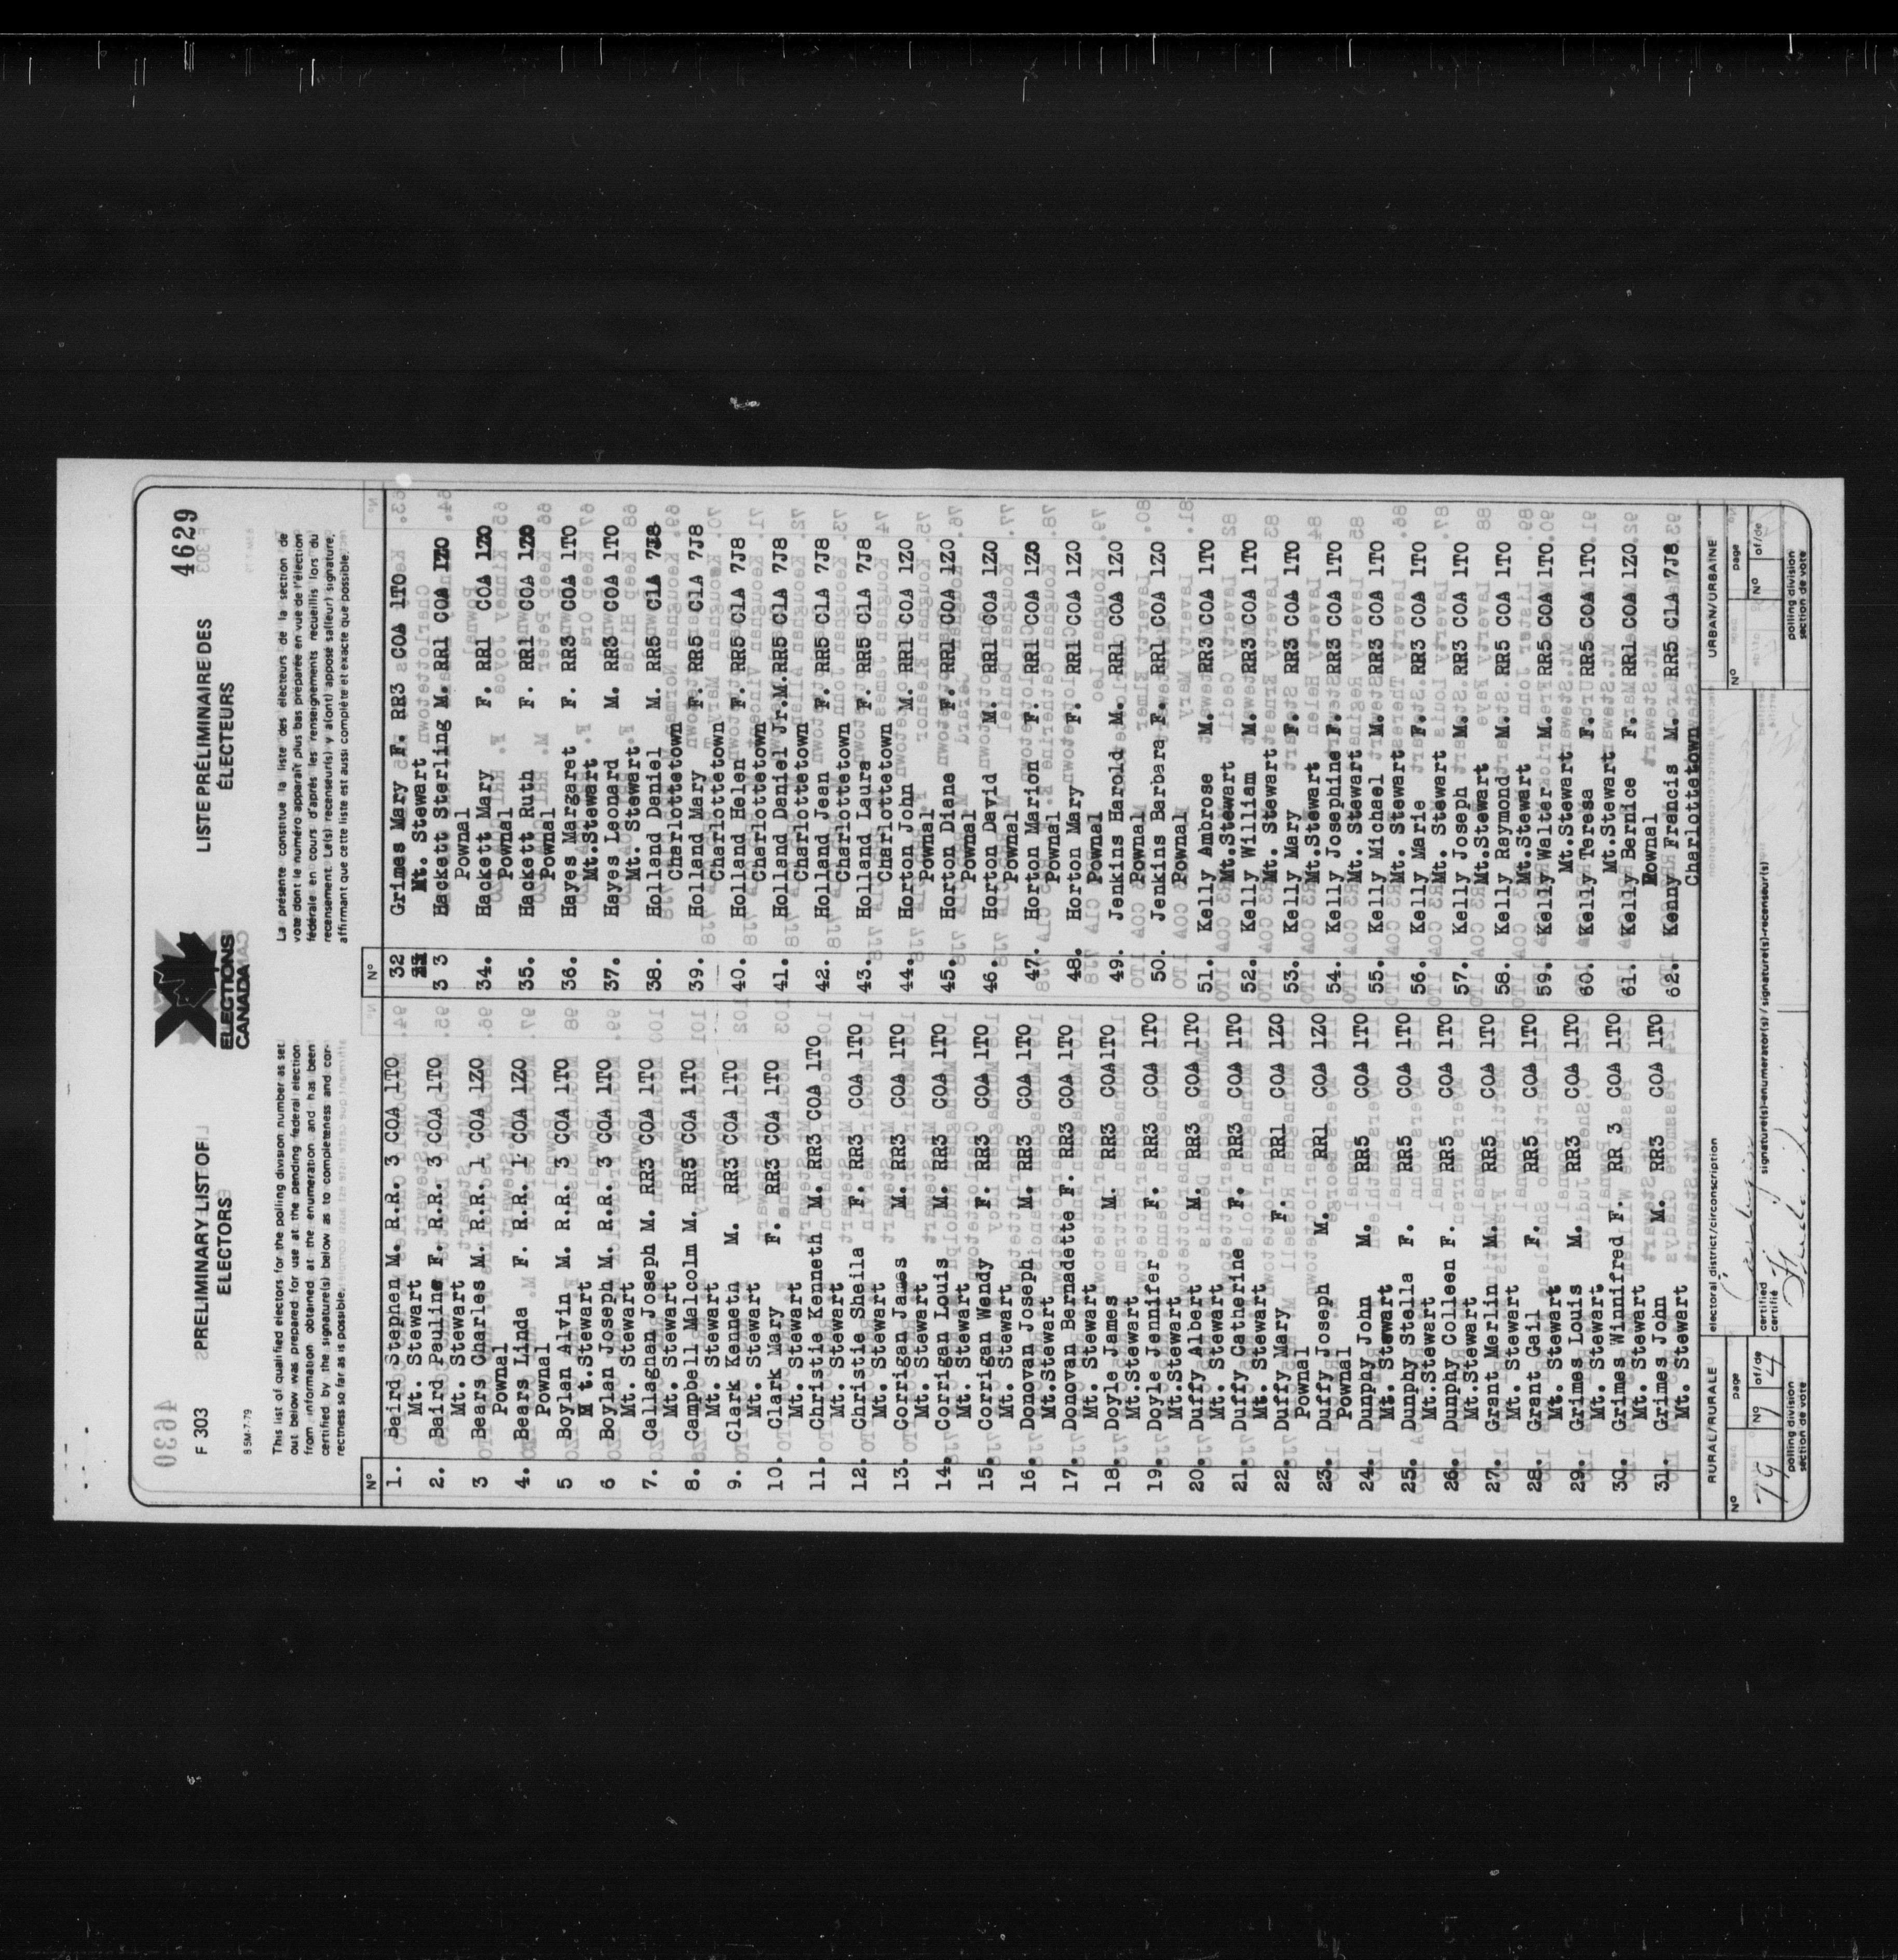 4629
F 303
PRELIMINARY LIST OF
ELECTORS
ELECTIONS
CANADA
LISTE PRÉLIMINAIRE DES
ÉLECTEURS
8 5M-7-79
This list of qualified electors for the polling division number as set
out below was prepared for use at the pending federal election
from information obtained at the enumeration and has been
certified by the signature(s) below as to completeness and cor-
rectness so far as is possible.
La présente constitue la liste des électeurs de la section de
vote dont le numéro apparaît plus bas préparée en vue de l'élection
fédérale en cours d'après les renseignements recueillis lors du
recensement. Le(s) recenseur(s) y a(ont) apposé sa(leur) signature,
affirmant que cette liste est aussi complète et exacte que possible.
Nº
1. Baird Stephen M. R.R. 3 COA 1TO
Mt. Stewart
2. Baird Pauline F. R.R. 3 COA 1TO
Mt. Stewart
3 Bears Charles M. R.R. 1 COA 1ZO
Pownal
4. Bears Linda F. R.R. 1 COA 1ZO
Pownal
5 Boylan Alvin M. R.R. 3 COA 1TO
M t.Stewart
6 Boylan Joseph M. R.R. 3 COA 1TO
Mt. Stewart
7. Callaghan Joseph M. RR3 COA 1TO
Mt. Stewart
8. Campbell Malcolm M. RR5 COA 1TO
Mt. Stewart
9. Clark Kenneth M. RR3 COA 1TO
Mt. Stewart
10. Clark Mary F. RR3 COA 1TO
Mt. Stewart
11. Christie Kenneth M. RR3 COA 1TO
Mt. Stewart
12. Christie Sheila F. RR3 COA 1TO
Mt. Stewart
13. Corrigan James M. RR3 COA 1TO
Mt. Stewart
14. Corrigan Louis M. RR3 COA 1TO
Mt. Stewart
15. Corrigan Wendy F. RR3 COA 1TO
Mt. Stewart
16. Donovan Joseph M. RR3 COA 1TO
Mt.Stewart
17. Donovan Bernadette F. RR3 COA 1TO
Mt. Stewart
18. Doyle James M. RR3 COA1TO
Mt.Stewart
19. Doyle Jennifer F. RR3 COA 1TO
Mt.Stewart
20. Duffy Albert M. RR3 COA 1TO
Mt. Stewart
21. Duffy Catherine F. RR3 COA 1TO
Mt. Stewart
22. Duffy Mary F. RR1 COA 1ZO
Pownal
23. Duffy Joseph M. RR1 COA 1ZO
Pownal
24. Dunphy John M. RR5 COA 1TO
Mt. Stewart
25. Dunphy Stella F. RR5 COA 1TO
Mt.Stewart
26. Dunphy Colleen F. RR5 COA 1TO
Mt.Stewart
27. Grant Merlin M. RR5 COA 1TO
Mt. Stewart
28. Grant Gail F. RR5 COA 1TO
Mt. Stewart
29. Grimes Louis M. RR3 COA 1TO
Mt. Stewart
30. Grimes Winnifred F. RR 3 COA 1TO
Mt. Stewart
31. Grimes John M. RR3 COA 1TO
Mt. Stewart
Nº
32 Grimes Mary F. RR3 COA 1TO
Mt. Stewart
3 3 Hackett Sterling M. RR1 COA 1ZO
Pownal
34. Hackett Mary F. RR1 COA 1ZO
Pownal
35. Hackett Ruth F. RR1 COA 1ZO
Pownal
36. Hayes Margaret F. RR3 COA 1TO
Mt.Stewart
37. Hayes Leonard M. RR3 COA 1TO
Mt. Stewart
38. Holland Daniel M. RR5 C1A 7J8
Charlottetown
39. Holland Mary F. RR5 C1A 7J8
Charlottetown
40. Holland Helen F. RR5 C1A 7J8
Charlottetown
41. Holland Daniel Jr.M.RR5 C1A 7J8
Charlottetown
42. Holland Jean F. RR5 C1A 7J8
Charlottetown
43. Holland Laura F. RR5 C1A 7J8
Charlottetown
44. Horton John M. RR1 COA 1ZO
Pownal
45. Horton Diane F. RR1 COA 1ZO
Pownal
46. Horton David M. RR1 COA 1ZO
Pownal
47. Horton Marion F. RR1 COA 1ZO
Pownal
48. Horton Mary F. RR1 COA 1ZO
Pownal
49. Jenkins Harold M. RR1 COA 1ZO
Pownal
50. Jenkins Barbara F. RR1 COA 1ZO
Pownal
51. Kelly Ambrose M. RR3 COA 1TO
Mt.Stewart
52. Kelly William M. RR3 COA 1TO
Mt. Stewart
53. Kelly Mary F. RR3 COA 1TO
Mt.Stewart
54. Kelly Josephine F. RR3 COA 1TO
Mt. Stewart
55. Kelly Michael M. RR3 COA 1TO
Mt. Stewart
56. Kelly Marie F. RR3 COA 1TO
Mt. Stewart
57. Kelly Joseph M. RR3 COA 1TO
Mt.Stewart
58. Kelly Raymond M. RR5 COA 1TO
Mt.Stewart
59. Kelly Walter M. RR5 COA 1TO
Mt.Stewart
60. Kelly Teresa F. RR5 COA 1TO
Mt.Stewart
61. Kelly Bernice F. RR1 COA 1ZO
Pownal
62. Kenny Francis M. RR5 C1A 7J8
Charlottetown
RURAL/RURALE
Nº
page
Nº
of/de
79
1
4
polling division
section de vote
electoral district/circonscription
certified
certifié
signature(s)-enumerator(s)/signature(s)-recenseur(s)
URBAN/URBAINE
Nº
page
Nº
of/de
polling division
section de vote